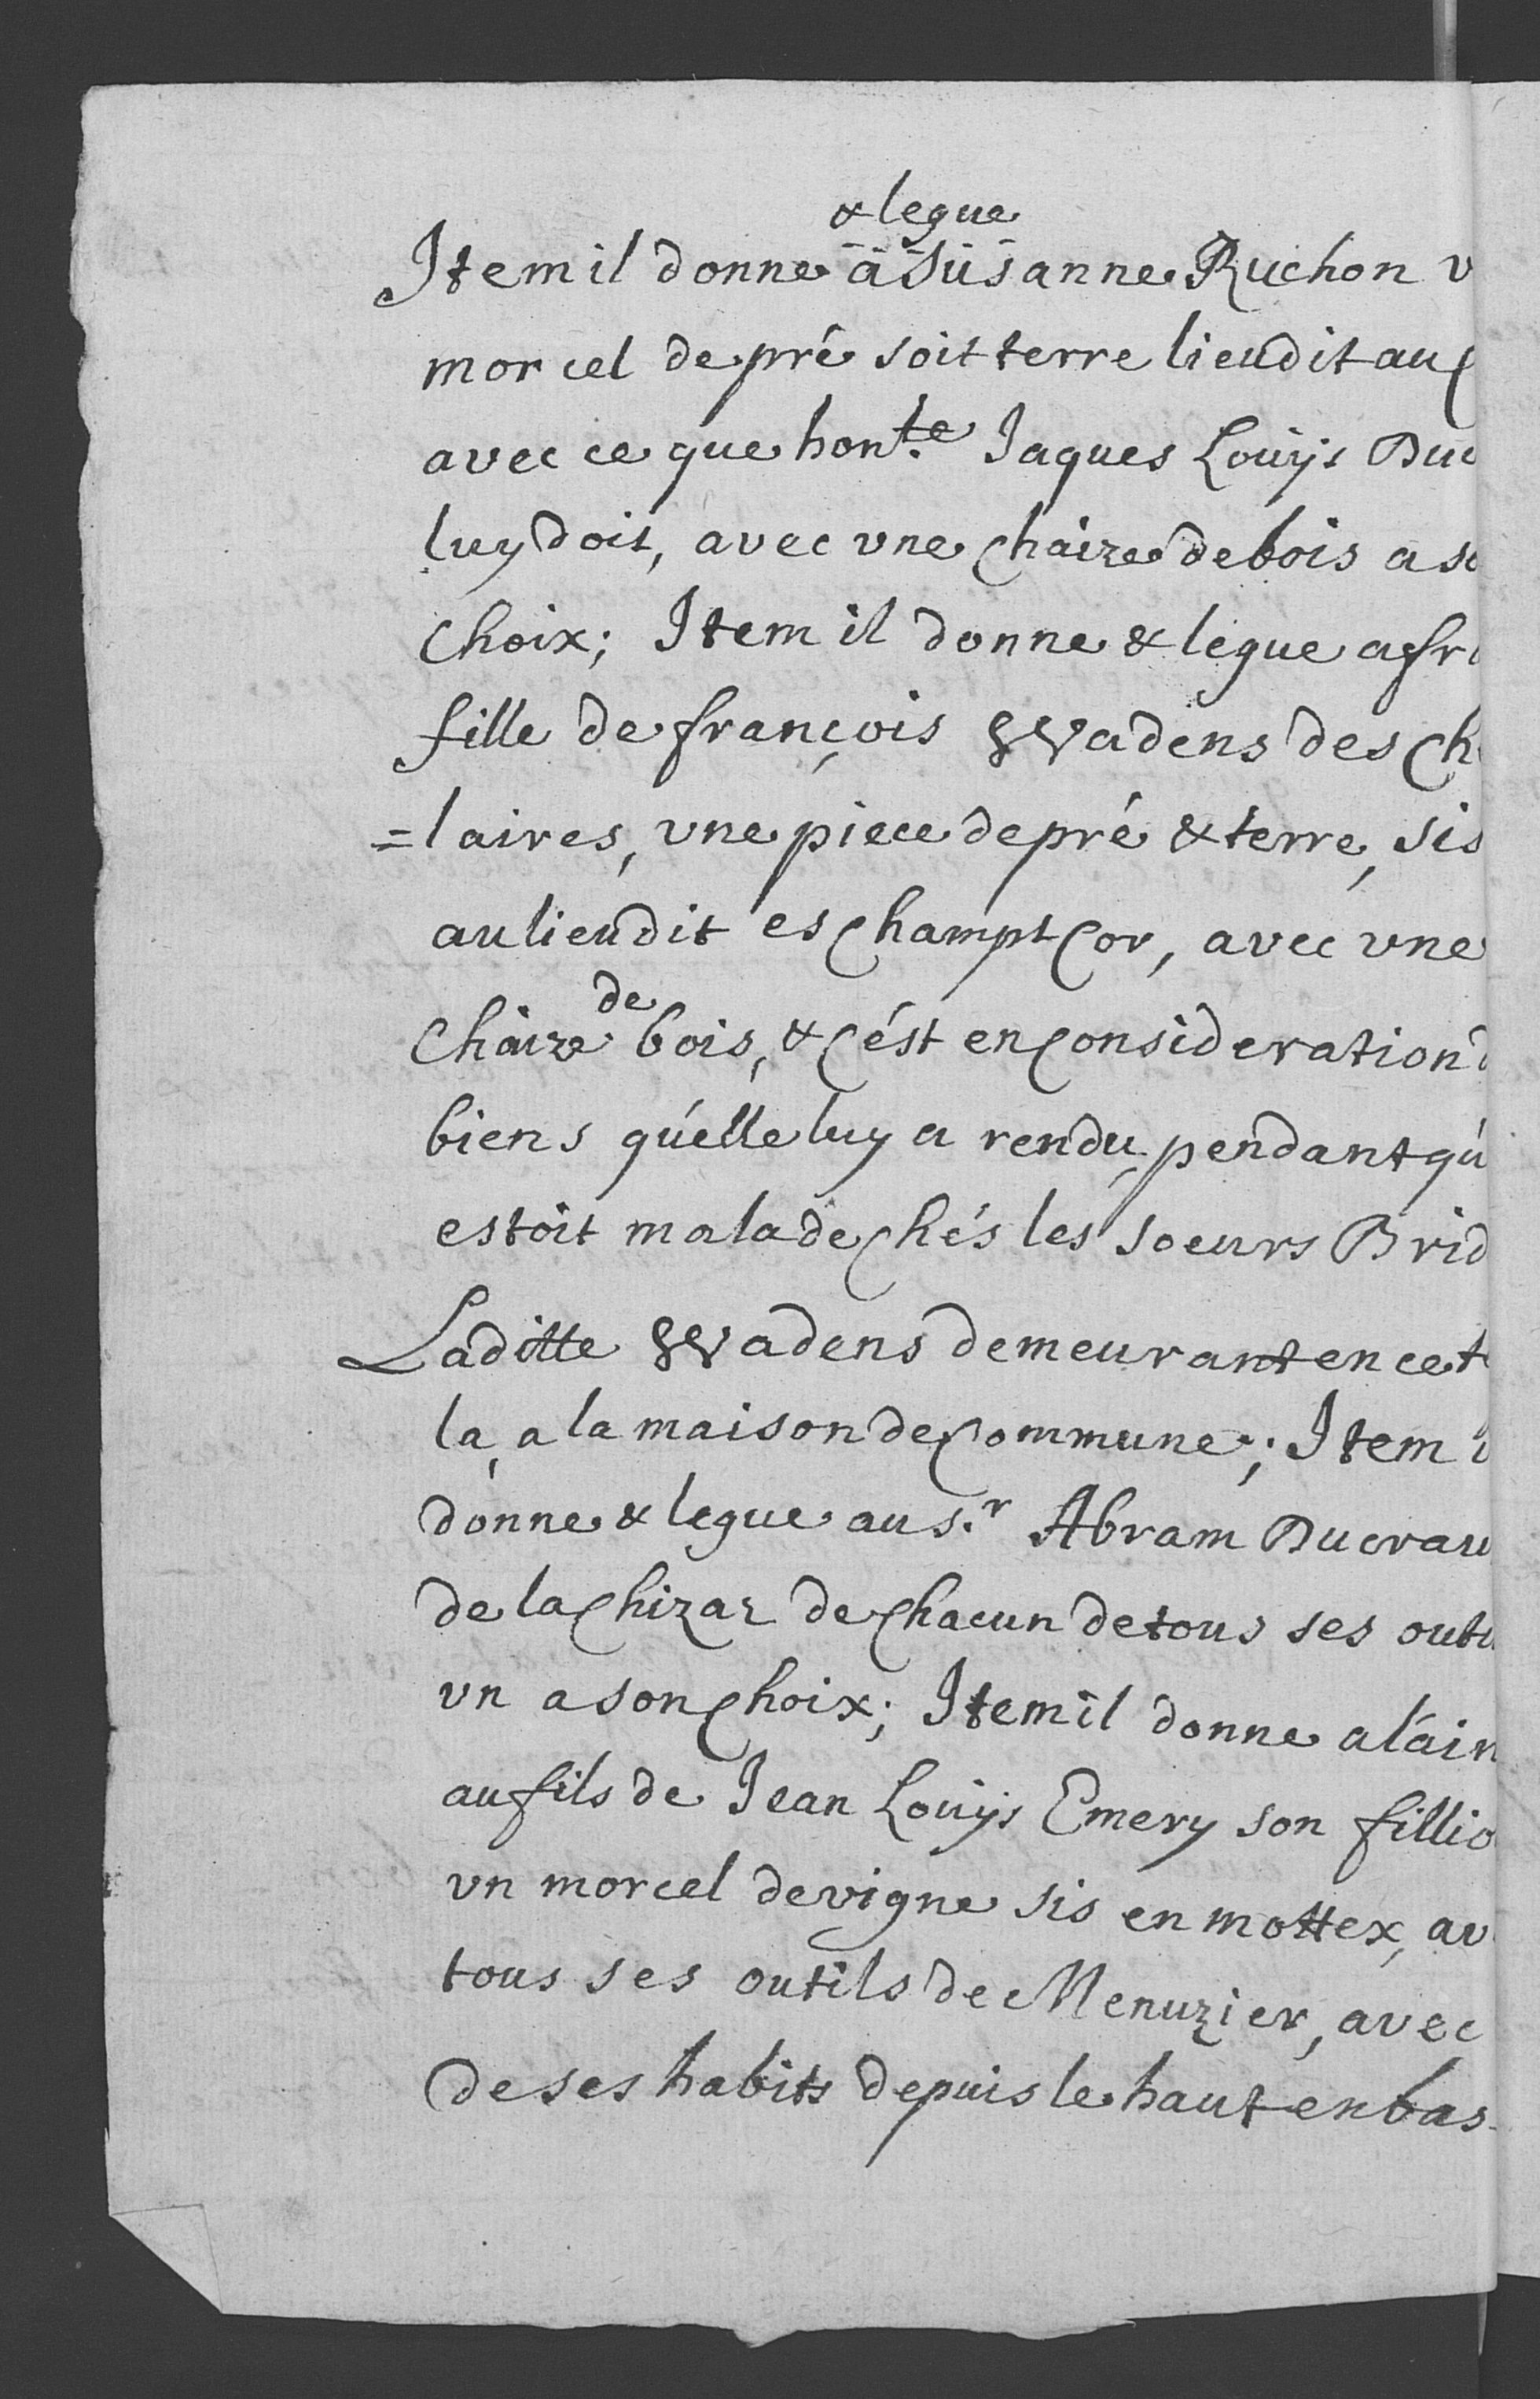 & legue
Item il donne a Susanne Ruchon v
morcel de pré soit terre lieudit au
avec ce que hon.te Jaques Louÿs Duc
luy doit, avec vne chaize de bois a so
choix; Item il donne & legue a fra
fille de françois Wadens des Ch
=laires, vne piece de pré & terre, sis
au lieudit es Champt Cor, avec vne
de
Chaize bois, & c'ést en consideration d
biens qu'elle luy a rendu pendant qu'
estoit malade chés les soeurs Brid
Laditte Wadens demeurant en cet
la, a la maison de commune; Item i
donne & legue au s.r Abram Ducrau
de la Chizaz de chacun de tous ses outi
vn a son choix; Item il donne a l'ain
au fils de Jean Louÿs Emery son fillio
vn morcel de vigne sis en mottex, av
tous ses outils de Menuzier, avec
de ses habits depuis le haut en bas